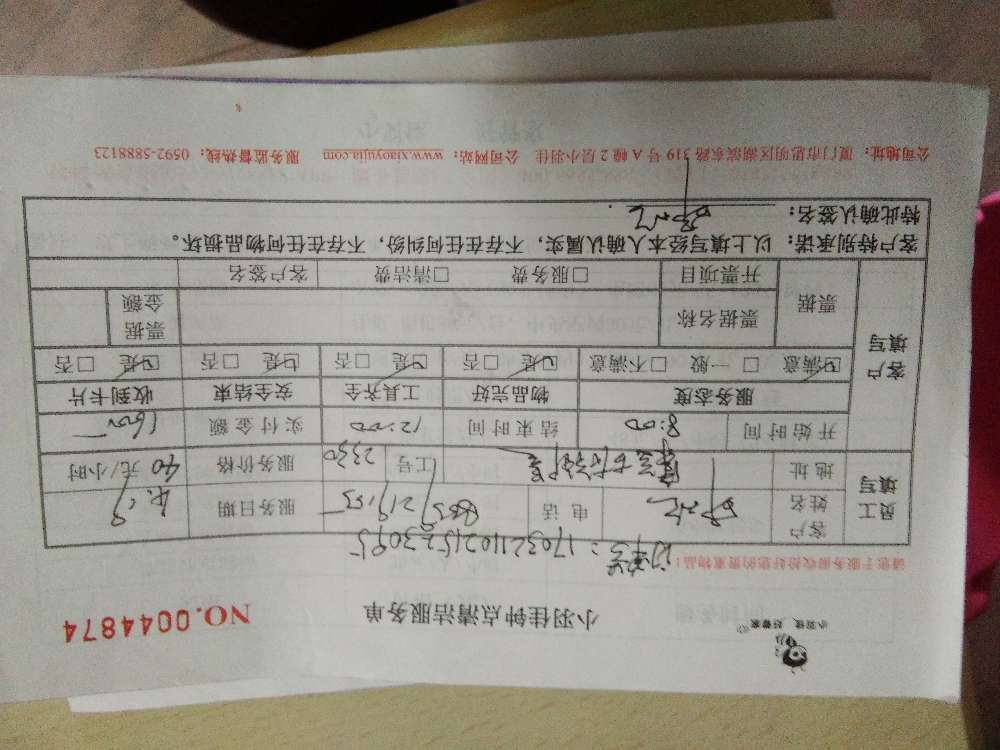 小羽佳 好管家
小羽佳钟点清洁服务单 NO.0044874
请您于服务前收拾好您的贵重物品！ 订单号：17032110215223095
员工填写 客户姓名 电话 服务日期
地址 工号 2330 服务价格 40 元/小时
客户填写 开始时间 8:00 结束时间 12:00 实付金额 160
服务态度 物品完好 工具齐全 安全结束 收到卡片
☑满意 □一般 □不满意 ☑是 □否 ☑是 □否 ☑是 □否 ☑是 □否
票据 票据名称 票据金额
开票项目 □服务费 □清洁费 客户签名
客户特别承诺：以上填写经本人确认属实，不存在任何纠纷，不存在任何物品损坏。
特此确认签名：
公司地址：厦门市思明区湖滨东路 319 号 A 幢 2 层小羽佳 公司网站：www.xiaoyujia.com 服务监督热线：0592-5888123